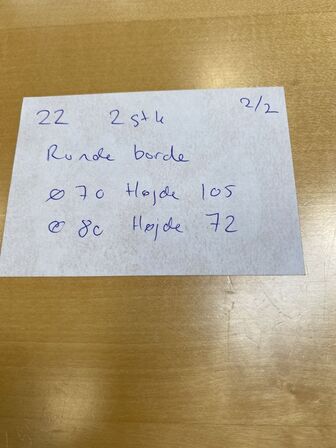 22 2 stk 2/2
Runde borde
ø 70 Højde 105
ø 80 Højde 72